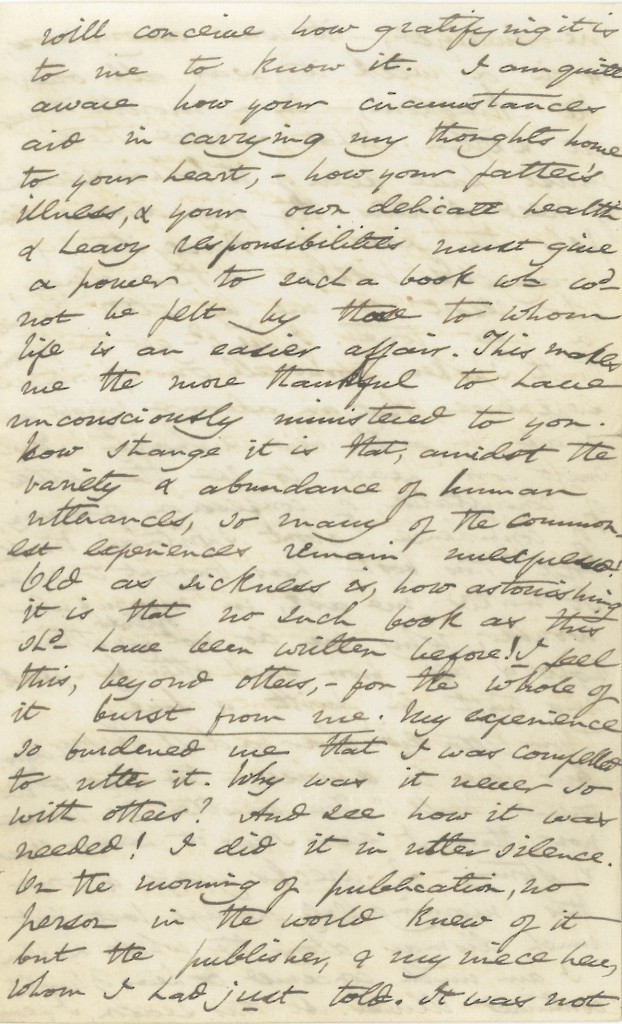 will conceive how gratifying it is
to me to know it. I am quite
aware how your circumstances
aid in carrying my thoughts home
to your heart, - how your father's
illness, & your own delicate health
& heavy responsibilities must give
a power to such a book wh cd
not be felt by those to whom
life is an easier affair. This makes
me the more thankful to have
unconsciously ministered to you.
How strange it is that, amidst the
variety & abundance of human
utterances, so many of the common-
est experiences remain unexpressed!
Old as sickness is, how astonishing
it is that no such book as this
shd have been written before! I feel
this, beyond others, - for the whole of
it burst from me. My experience
so burdened me that I was compelled
to utter it. Why was it never so
with others? And see how it was
needed! I did it in utter silence.
On the morning of publication, no
person in the world knew of it
but the publisher, & my niece here,
whom I had just told. It was not